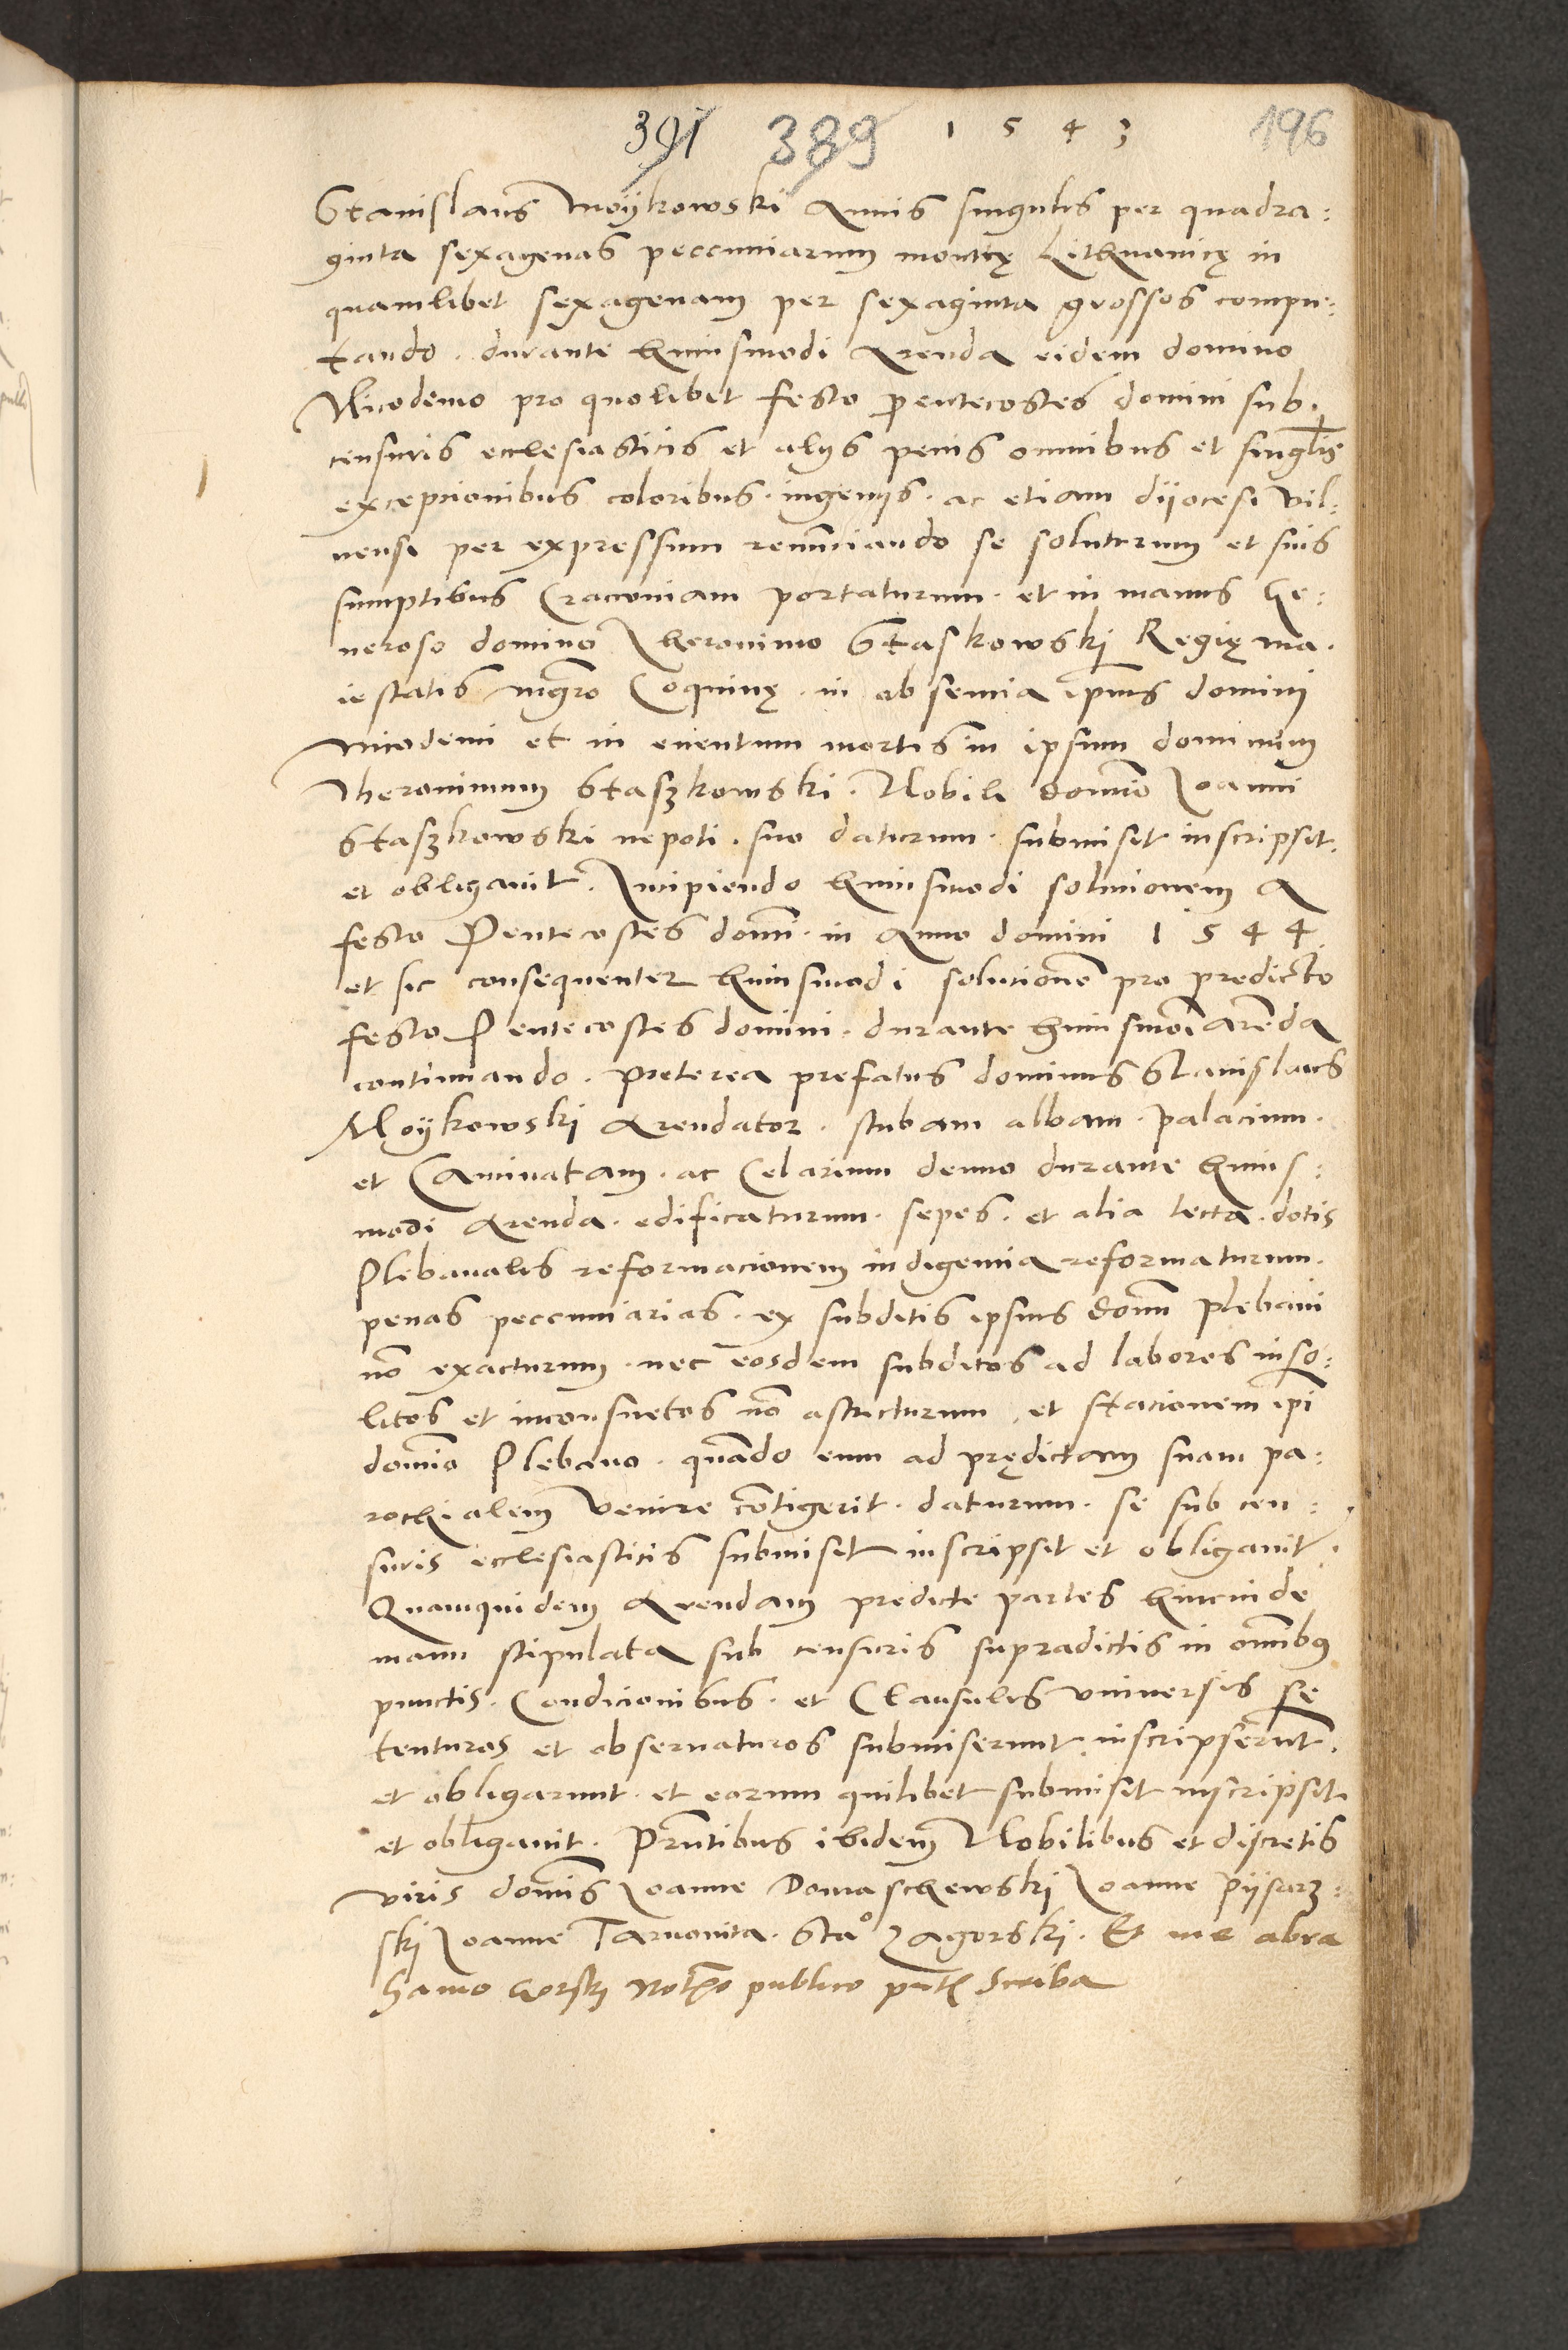 391 389 1 5 4 3 196
Stanislaus Moÿkowski Annis singulis per quadra:
ginta sexagenas peccuniarum monetę Lithuanicę in
quamlibet sexagenam per sexaginta grossos compu:
tando . durante huiusmodi Arenda eidem domino
Nicodemo pro quolibet festo pentecostes domini sub.
censuris ecclesiasticis et alijs penis omnibus et singlis
excepcionibus coloribus . ingenijs . ac etiam diiocesi vil:
nensi per expressum renunciando se soluturum et suis
sumptibus Cracouiam portaturum . et in manus Ge:
neroso domino Iheronimo Staskowski Regię ma.
iestatis mgro Coquinę . in absencia ipius domini
Nicodemi et in euentum mortis in ipsum dominum
Iheronimum Staszkowski . Nobili domino Ioanni
Staszkowski nepoti . suo daturum . submisit inscripsit .
et obligauit . Incipiendo huiusmodi solucionem A
festo Pentecostes domi . in Anno domini 1 5 4 4
et sic consequenter huiusmodi solutione pro predicto
festo Pentecostes domini . durante huiusmoi arenda
continuando . preterea prefatus dominus Stanislaus
Moÿkowski Arendator . stubam albam . palacium .
et Caminatam . ac Celarium denuo durante huius:
modi Arenda . edificaturum . sepes . et alia tecta . dotis
Plebanalis reformacionem indigencia reformaturum .
penas peccuniarias . ex subditis ipsius domi plebani
no exacturum . nec eosdem subditos ad labores inso:
litos et inconsuetos no astricturum . et stacionem ipi
domino Plebano . quando eum ad prędictam suam pa:
rochialem venire contigerit . daturum . se sub cen:
suris ecclesiasticis submisit inscripsit et obligauit .
Quamquidem Arendam predicte partes hincinde
manu stipulata sub censuris supradictis in omnibus
punctis . Condicionibus . et Clausulis vniuersis se
tenturos et obseruaturos submiserunt inscripserunt .
et obligarunt . et eorum quilibet submisit inscripsit
et obligauit . Prntibus ibidem Nobilibus et discretis
viris dominis Ioanne Domaschewski Ioanne Piisarz:
ski Ioanne Tarnonita . Stao Zagorski . Et me abra
hamo Gorskj notho publico pntis scriba